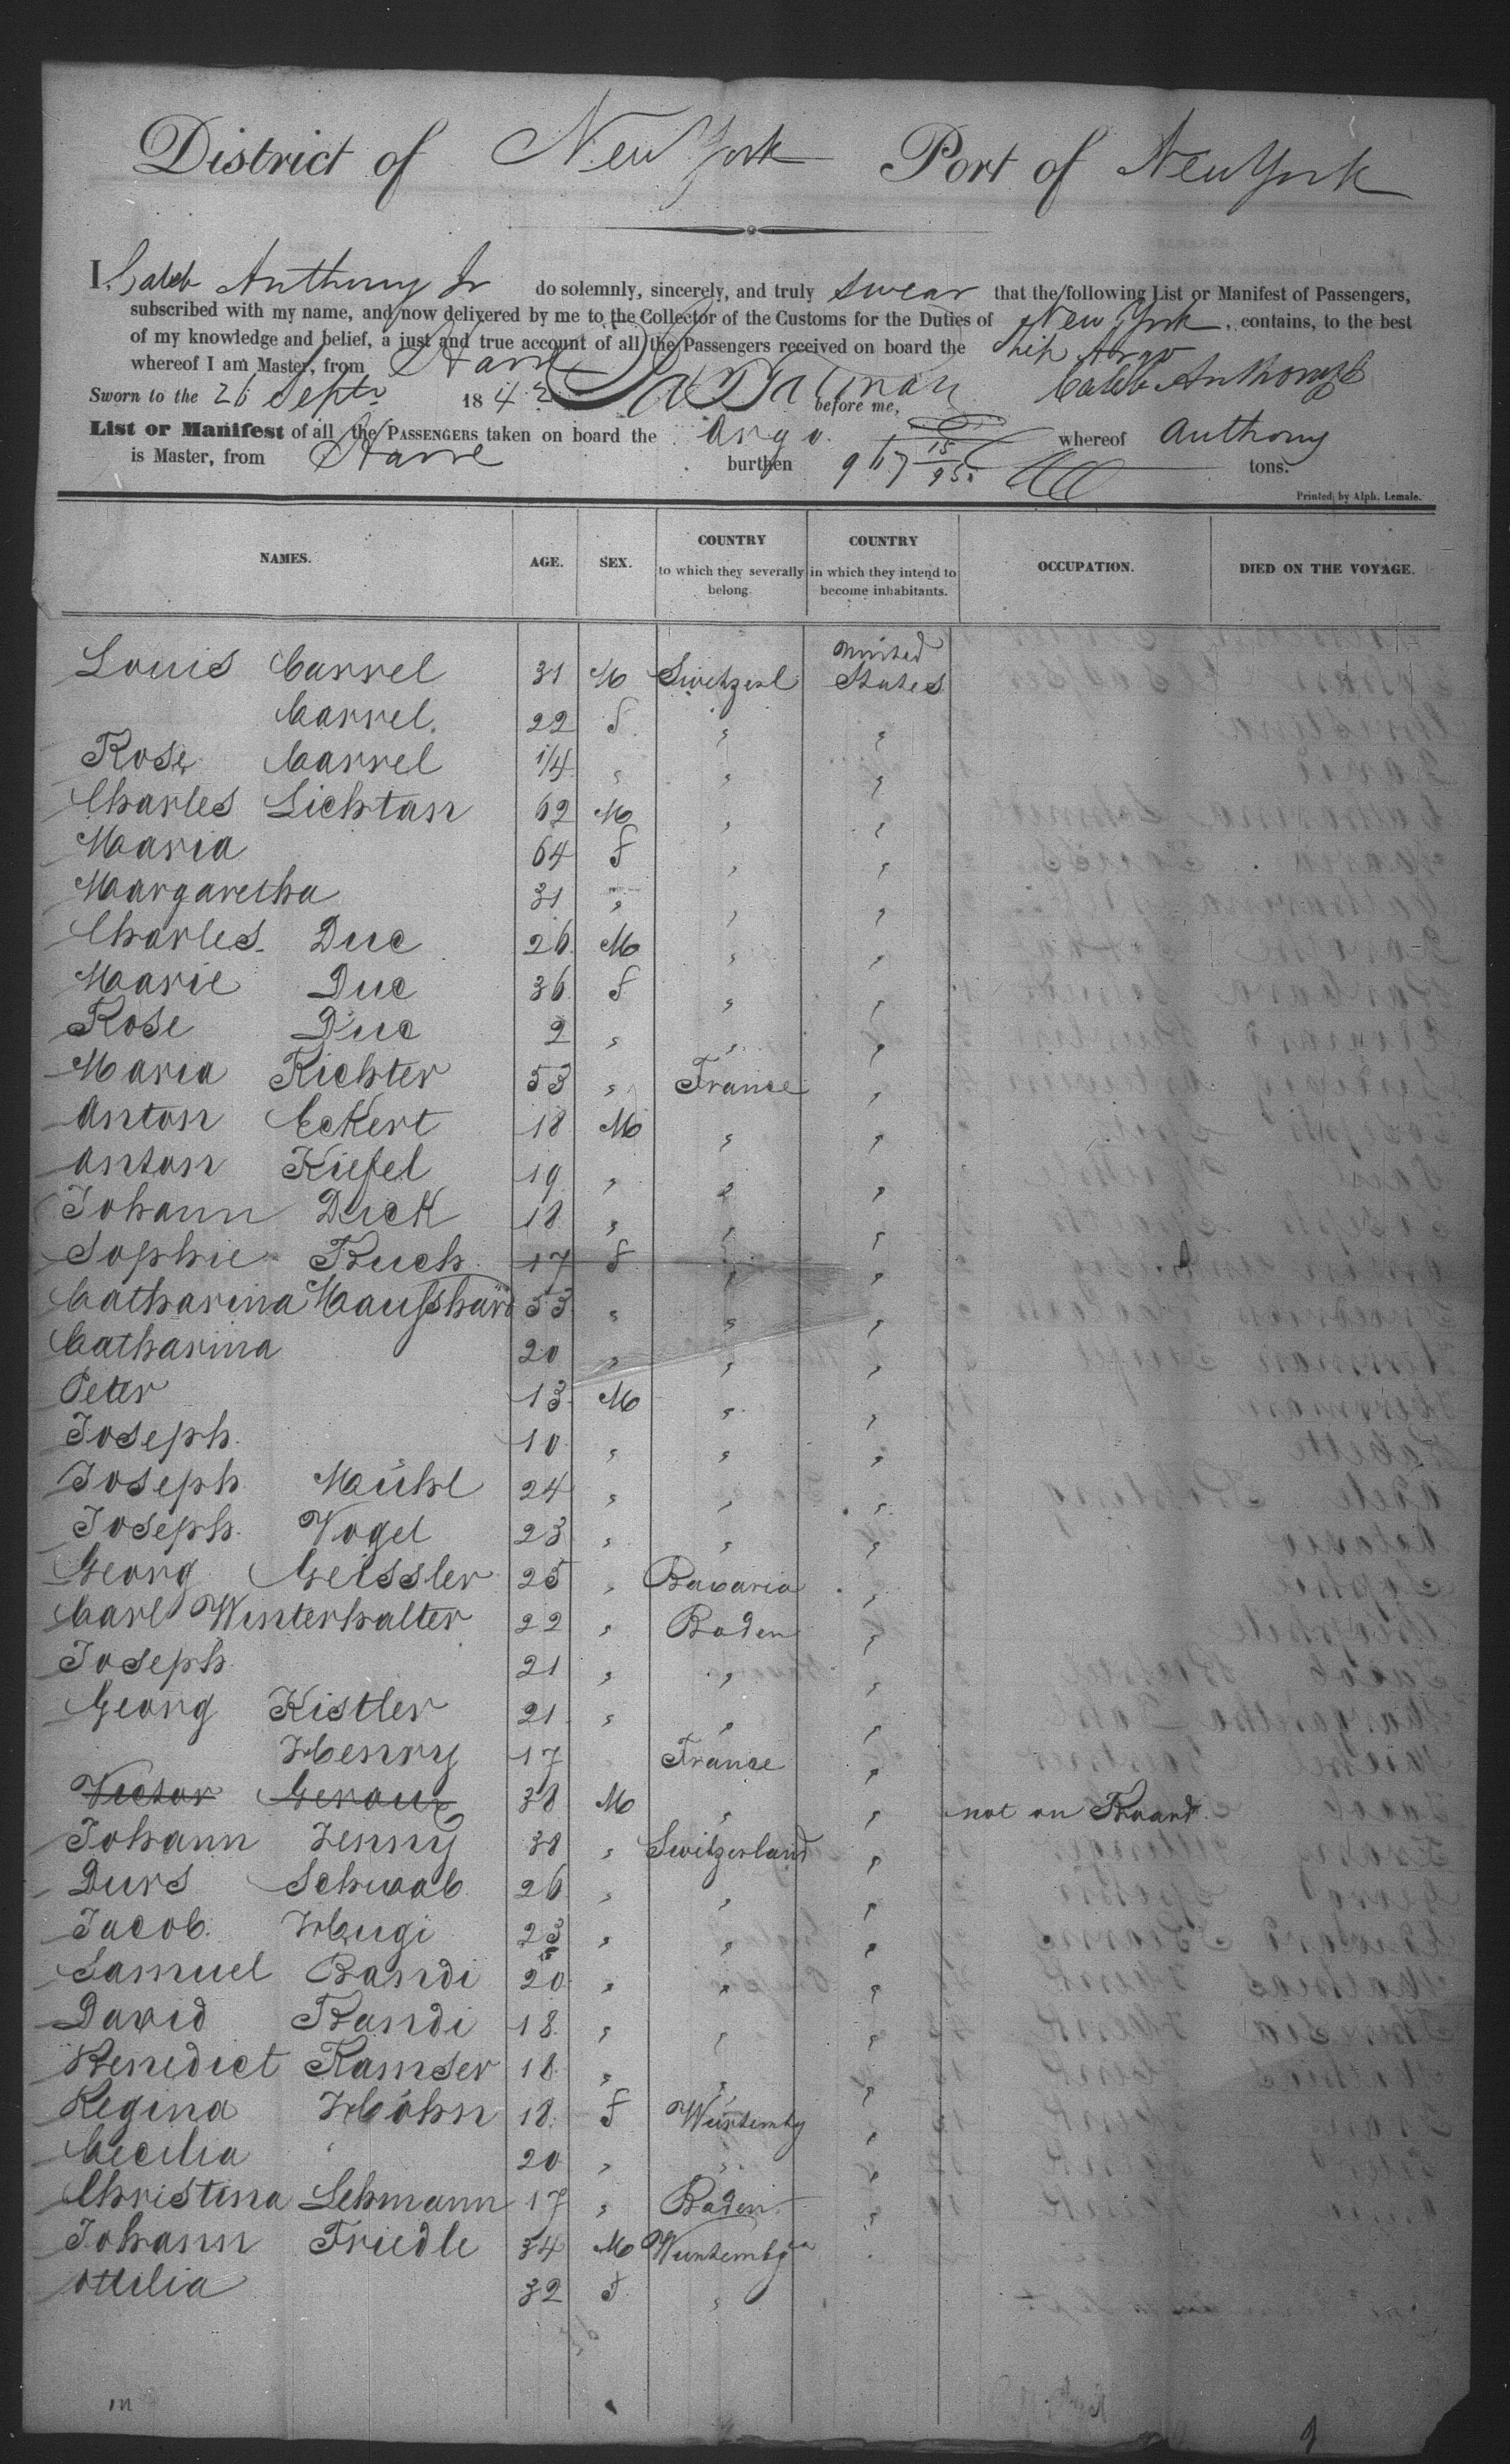 District of New York Port of New York
I Caleb Anthony Jr do solemnly, sincerely, and truly swear that the following List or Manifest of Passengers,
subscribed with my name, and now delivered by me to the Collector of the Customs for the Duties of New York, contains, to the best
of my knowledge and belief, a just and true account of all the Passengers received on board the Ship Argo
whereof I am Master, from Havre Caleb Anthony Jr
Sworn to the 26 Septr 1842 before me,
List or Manifest of all the PASSENGERS taken on board the Argo. whereof Anthony
is Master, from Havre burthen 967 15/95 tons.
Printed by Alph. Lemale.
NAMES. AGE. SEX. COUNTRY to which they severally belong. COUNTRY in which they intend to become inhabitants. OCCUPATION. DIED ON THE VOYAGE.
Louis Carrel 31 M Switzerl United States
Carrel. 22 f " "
Rose Carrel 1/4 " " "
Charles Lichtan 62 M " "
Maria 64 f " "
Margaretha 31 " " "
Charles Duc 26 M " "
Marie Duc 36 f " "
Rose Duc 2 " " "
Maria Richter 53 " France "
Anton Eckert 18 M " "
Anton Kiefel 19 " " "
Johann Dick 18 " " "
Sophie Ruch 17 f " "
Catharina 53 " " "
Catharina 20 " " "
Peter 13 M " "
Joseph 10 " " "
Joseph Mühl 24 " " "
Joseph Vogel 23 " " "
Georg Geissler 25 " Bavaria "
Carl Winterhalter 22 " Baden "
Joseph 21 " " "
Georg Kistler 21 " " "
Henry 17 France "
Victor Geroux 38 M " " not on Board.
Johann Jenny 38 " Switzerland "
Durs Schwab 26 " " "
Jacob Hugi 23 " " "
Samuel Bandi 20 " " "
David Bandi 18 " " "
Benedict Ramser 18 " " "
Regina Höhn 18 f Würtembg "
Cecilia " 20 " " "
Christina Lehmann 17 " Baden "
Johann Friedle 34 M Würtembg "
Ottilia 32 f " "